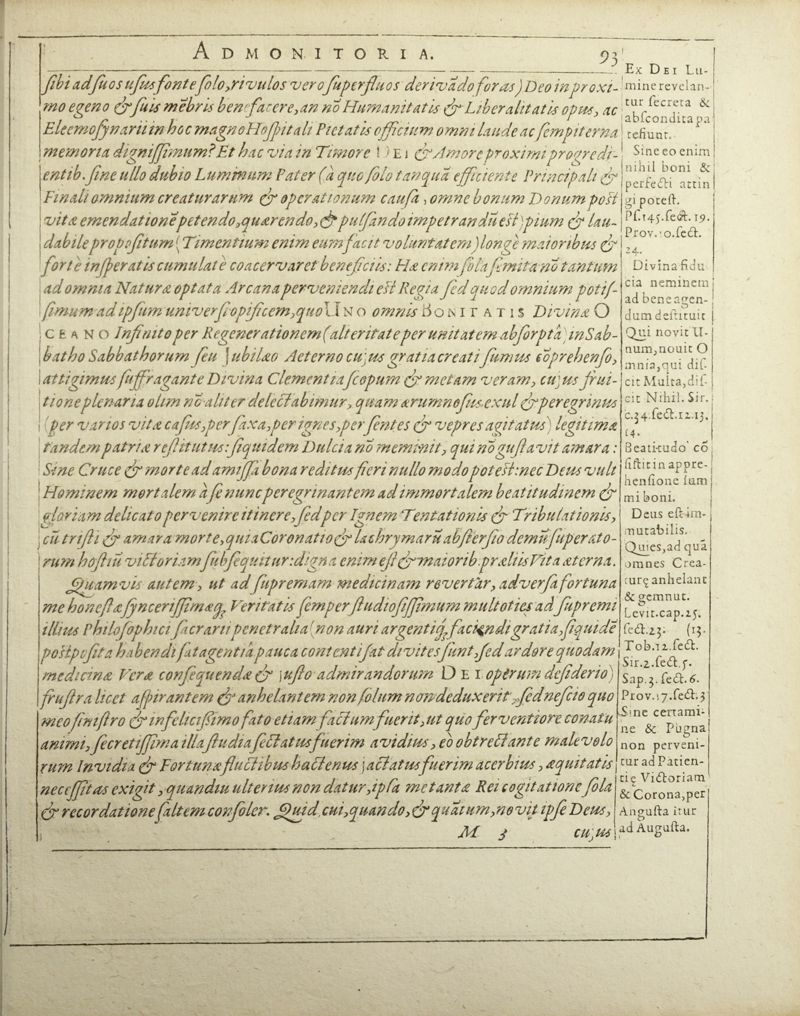 ADMONITORIA. 93
sibi ad suos usus fonte solo, rivulos vero superfluos derivādo foras) Deo in proxi-
mo egeno & suis mēbris benefacere, an nō Humanitatis & Liberalitatis opus, ac
Eleemosynarii in hoc magno Hospitali Pietatis officium omni laude ac sempiterna
memoria dignissimum? Et hac via in Timore DEI & Amore proximi progredi-
entib. sine ullo dubio Luminum Pater (à quo solo tanquā efficiente Principali &
Finali omnium creaturarum & operationum causa, omne bonum Donum post
vitæ emendationē petendo, quærendo, & pulsando impetrandū est) pium & lau-
dabile propositum (Timentium enim eum facit voluntatem) longè maioribus &
forte insperatis cumulatè coacervaret beneficiis: Hæ enim sola semita nō tantum
ad omnia Naturæ optata Arcana perveniendi est Regia sed quod omnium potis-
simum ad ipsum universi opificem, quo UNO omnis BONITATIS Divinæ O
CEANO Infinito per Regenerationem (alteritate per unitatem absorptâ) in Sab-
batho Sabbathorum seu Jubilæo Aeterno cujus gratia creati sumus cōprehenso,
attigimus suffragante Divina Clementia scopum & metam veram, cujus frui-
tione plenaria olim nō aliter delectabimur, quam ærumnosus exul & peregrinus
(per varios vitæ casus, per saxa, per ignes, per sentes & vepres agitatus) legitimæ
tandem patriæ restitutus: siquidem Dulcia nō meminit, qui nō gustavit amara:
Sine Cruce & morte ad amissa bona reditus fieri nullo modo potest: nec Deus vult
Hominem mortalem à se nunc peregrinantem ad immortalem beatitudinem &
gloriam delicato pervenire itinere, sed per Ignem Tentationis & Tribulationis,
cū tristi & amara morte, quia Coronatio & lachrymarū abstersio demū superato-
rum hostiū victoriam subsequitur: digna enim est & maiorib. præliis Vita æterna.
Quamvis autem, ut ad supremam medicinam revertar, adversa fortuna
me honestæ syncerissimæq; Veritatis semper studiosissimum multoties ad supremi
illius Philosophici sacrarii penetralia (non auri argentiq; faciendi gratia, siquidē
postposita habendi fatagentia pauca contenti sat divites sunt, sed ardore quodam
medicinæ Veræ consequendæ & justo admirandorum DEI operum desiderio)
frustra licet aspirantem & anhelantem non solum non deduxerit, sed nescio quo
meo sinistro & infelicissimo fato etiam factum fuerit, ut quo ferventiore conatu
animi, secretissima illa studia sectatus fuerim avidius, eò obtrectante malevolo
rum Invidia & Fortunæ fluctibus hactenus jactatus fuerim acerbius, æquitatis
necessitas exigit, quandiu ulterius non datur, ipsa me tantæ Rei cogitatione sola
& recordatione saltem consoler. Quid, cui, quando, & quātum, novit ipse Deus,
M 3 cujus
Ex DEI Lu-
mine revelan-
tur secreta &
abscondita pa
tefiunt.
Sine eo enim
nihil boni &
perfecti attin
gi potest.
Ps. 145. sect. 19.
Prov. 10. sect.
24.
Divina fidu
cia neminem
ad bene agen-
dum destituit
Qui novit U-
num, nouit O
mnia, qui dis-
cit Multa, dis-
cit Nihil. Sir.
c. 34. sect. 12. 13.
14.
Beatitudo cō
sistit in appre-
hensione sum
mi boni.
Deus est im-
mutabilis.
Quies, ad quā
omnes Crea-
turę anhelant
& gemnut.
Levit. cap. 25.
sect. 23. (13.
Tob. 12. sect.
Sir. 2. sect. 5.
Sap. 3. sect. 6.
Prov. 17. sect. 3
Sine certami-
ne & Pugna
non perveni-
tur ad Patien-
tię Victoriam
& Corona, per
Angusta itur
ad Augusta.